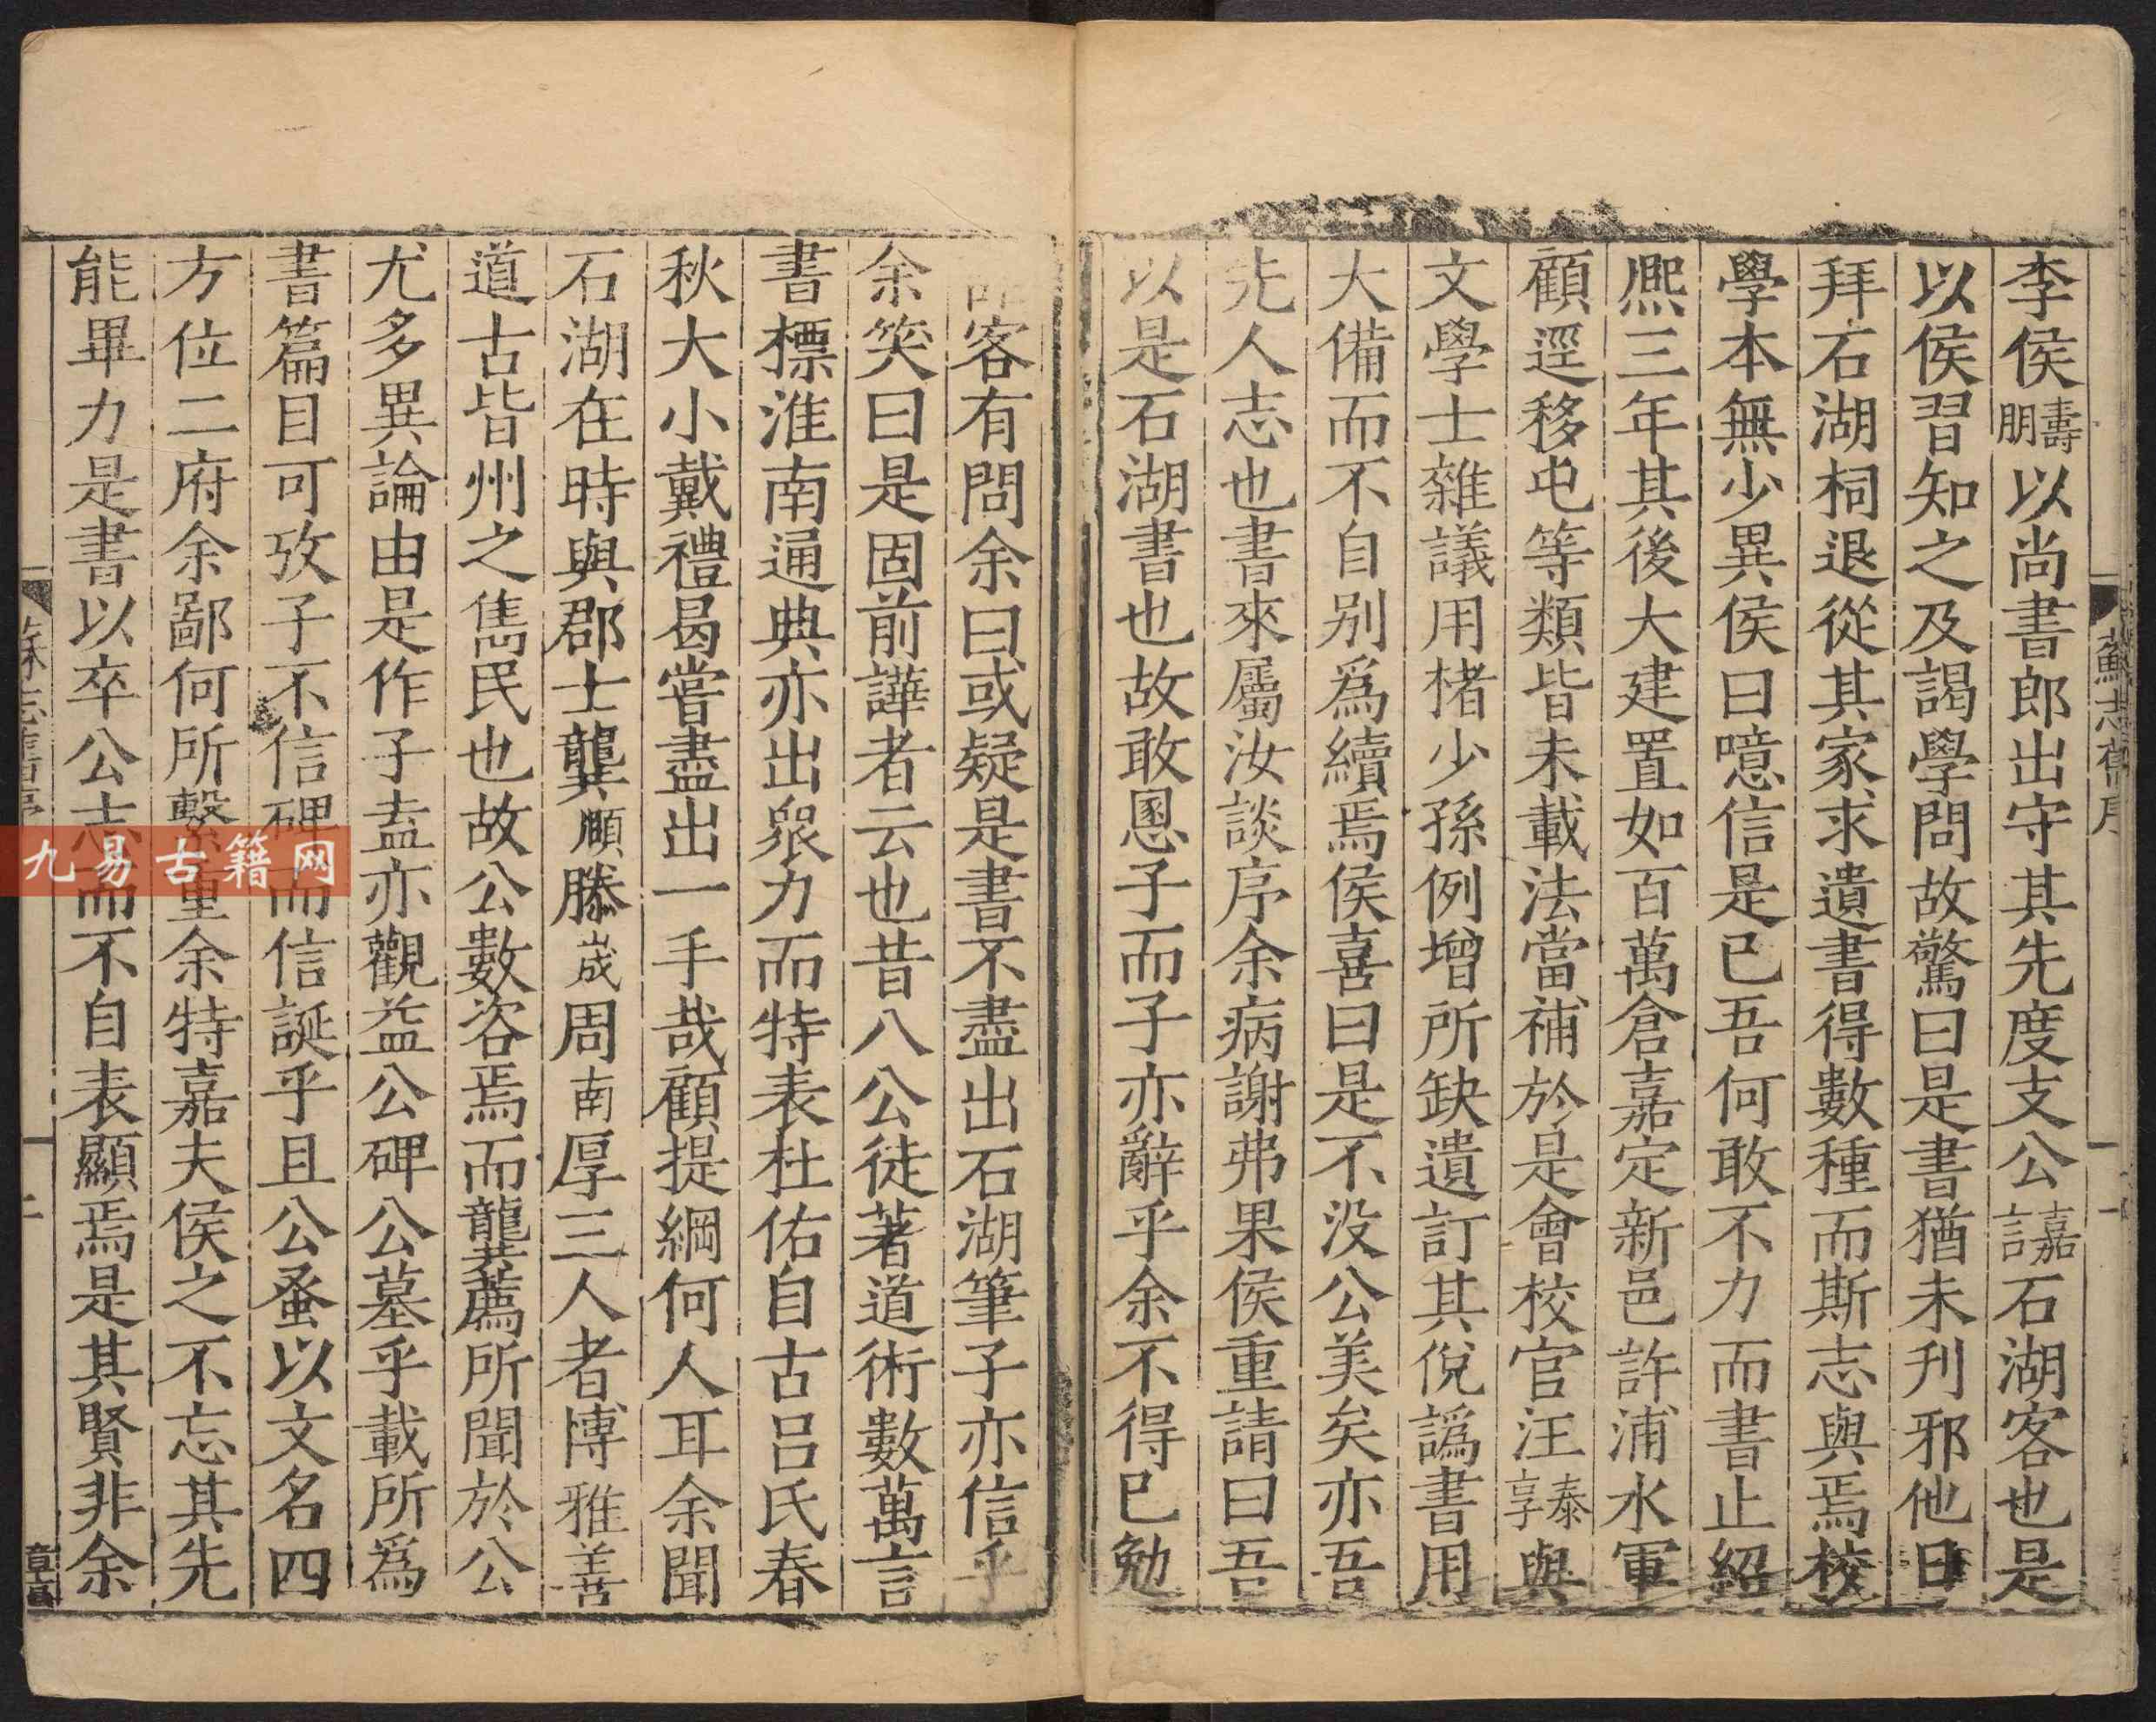 李侯壽朋以尚書郎出守其先度支公嘉言石湖客也是
以侯習知之及謁學問故驚曰是書猶未刋邪他日
拜石湖祠退從其家求遺書得數種而斯志與焉校
學本無少異侯曰噫信是已吾何敢不力而書止紹
熈三年其後大建置如百萬倉嘉定新邑許浦水軍
顧逕移屯等類皆未載法當補於是會校官汪泰亨與
文學士雜議用楮少孫例增所缺遺訂其侻譌書用
大備而不自别爲續焉侯喜曰是不没公美矣亦吾
先人志也書來屬汝談序余病謝弗果侯重請曰吾
以是石湖書也故敢慁子而子亦辭乎余不得已勉
客有問余曰或疑是書不盡出石湖筆子亦信乎
余笑曰是固前譁者云也昔八公徒著道術數萬言
書標淮南通典亦出衆力而特表杜佑自古吕氏春
秋大小戴禮曷嘗盡出一手哉顧提綱何人耳余聞
石湖在時與郡士龔頤滕宬周南厚三人者博雅善
道古皆州之雋民也故公數咨焉而龔薦所聞於公
尤多異論由是作子盍亦觀益公碑公墓乎載所爲
書篇目可攷子不信碑而信誕乎且公蚤以文名四
方位二府余鄙何所繫重余特嘉夫侯之不忘其先
能畢力是書以卒公志而不自表顯焉是其賢非余
蘇志舊序
九易古籍网